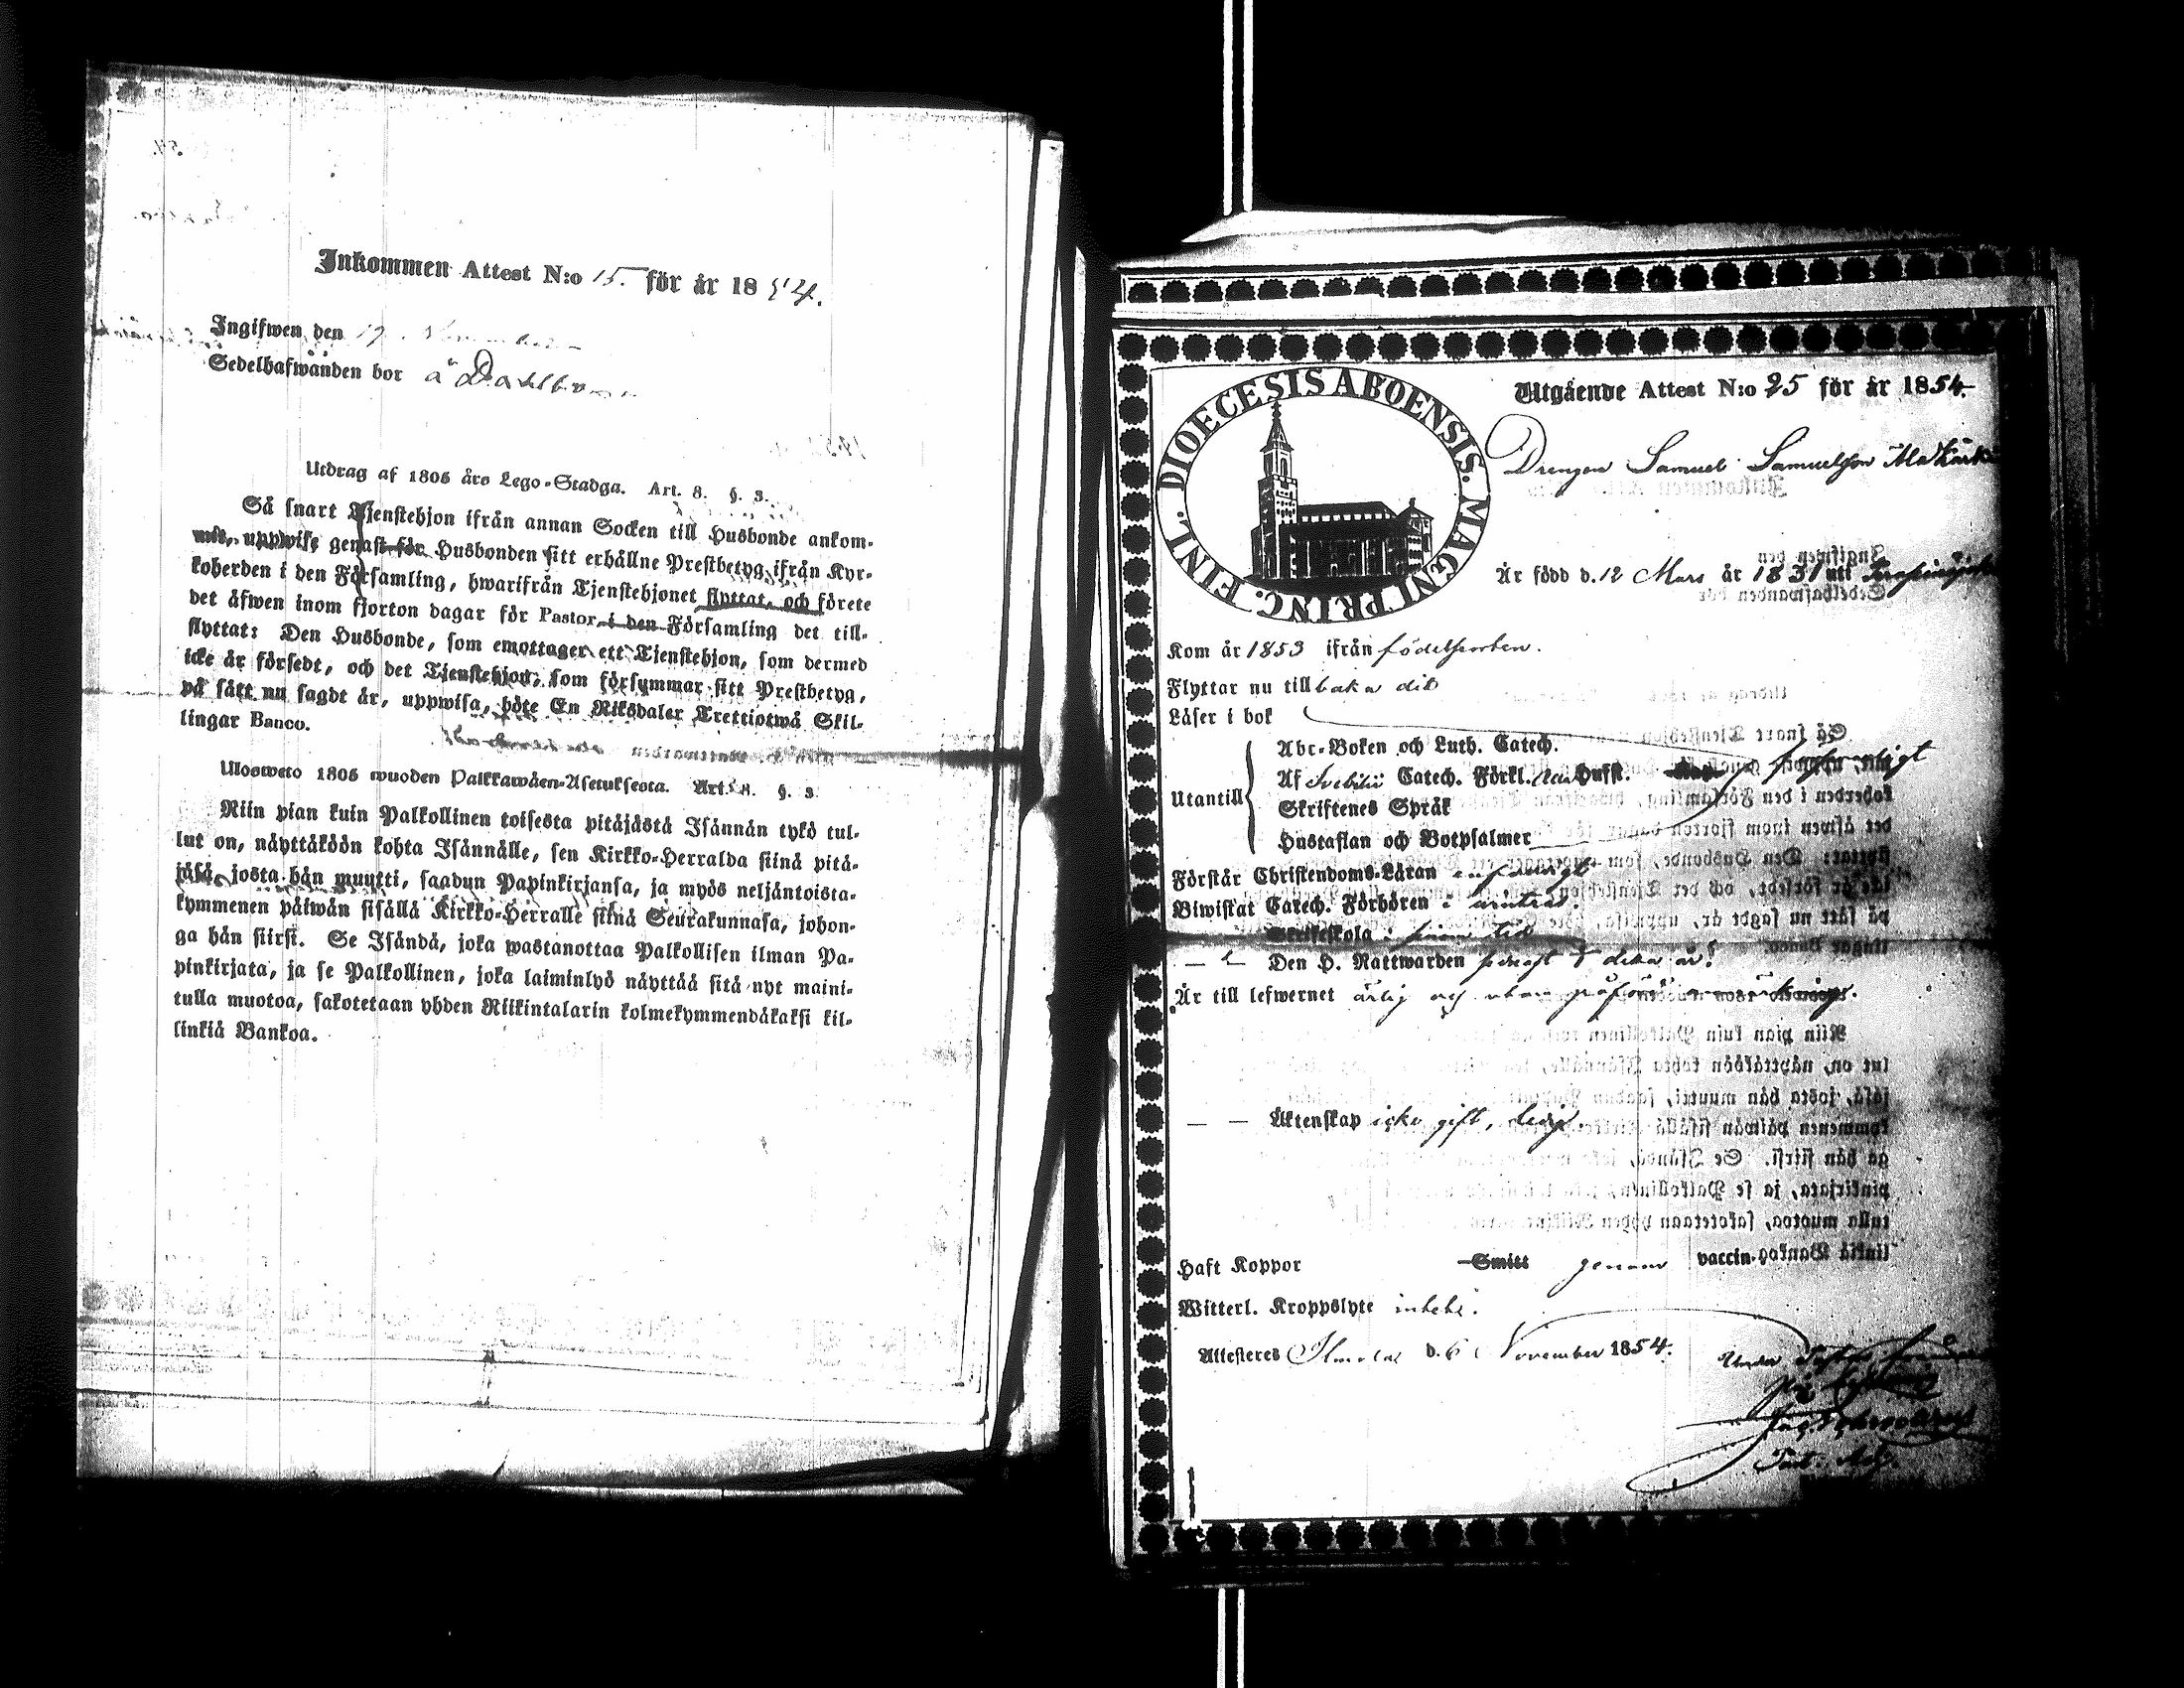 Inkommen Attest N:o 15. för år 1854.
Ingifwen den 17. November
Sedelhafwanden bor å Dahlbo
Utdrag af 1805 års Lego-Stadga. Art. 8. §. 3.
Så snart Tjenstehjon ifrån annan Socken till Husbonde ankom-
mit, uppwise genast för Husbonden sitt erhållne Prestbetyg ifrån Kyr-
koherden i den Församling, hwarifrån Tjenstehjonet flyttat, och förete
det äfwen inom fjorton dagar för Pastor i den Församling det till-
flyttat: Den Husbonde, som emottager ett Tjenstehjon, som dermed
icke är försedt, och det Tjenstehjon, som försummar sitt Prestbetyg,
på sätt nu sagdt är, uppwisa, böte En Riksdaler Trettiotwå Skil-
lingar Banco.
Ulosweto 1805 wuoden Palkkawäen-Asetuksesta. Art. 8. §. 3.
Niin pian kuin Palkollinen toisesta pitäjästä Isännän tykö tul-
lut on, näyttäköön kohta Isännälle, sen Kirkko-Herralda siinä pitä-
jäsä, josta hän muutti, saadun Papinkirjansa, ja myös neljäntoista-
kymmenen päiwän sisällä Kirkko-Herralle siinä Seurakunnasa, johon-
ga hän siirsi. Se Isändä, joka wastanottaa Palkollisen ilman Pa-
pinkirjata, ja se Palkollinen, joka laiminlyö näyttää sitä nyt maini-
tulla muotoa, sakotetaan yhden Riikintalarin kolmekymmendäkaksi kil-
linkiä Bankoa.
DIOECESIS ABOENSIS. MAGNI PRINC. FINL.
Utgående Attest N:o 25 för år 1854.
Drengen Samuel Samuelsson Ala
Är född d. 12 Mars år 1831 uti
Kom år 1853 ifrån födelseorten.
Flyttar nu till baka dit
Läser i bok
Utantill
Abc-Boken och Luth. Catech.
Af Svebilii Catech. Förkl. Hufst. försvarligt
Skriftenes Språk
Hustaflan och Botpsalmer
Förstår Christendoms-Läran enfaldigt
Biwistat Catech. Förhören i vintras.
Skriftskola i sinom tid
Den H. Nattwarden senast detta år.
Är till lefwernet ärlig och utan anmärkning.
Äktenskap icke gift, ledig.
Haft Koppor Smitt genom vaccin.
Witterl. Kroppslyte intet.
Attesteres Ilmola d. 6 November 1854.